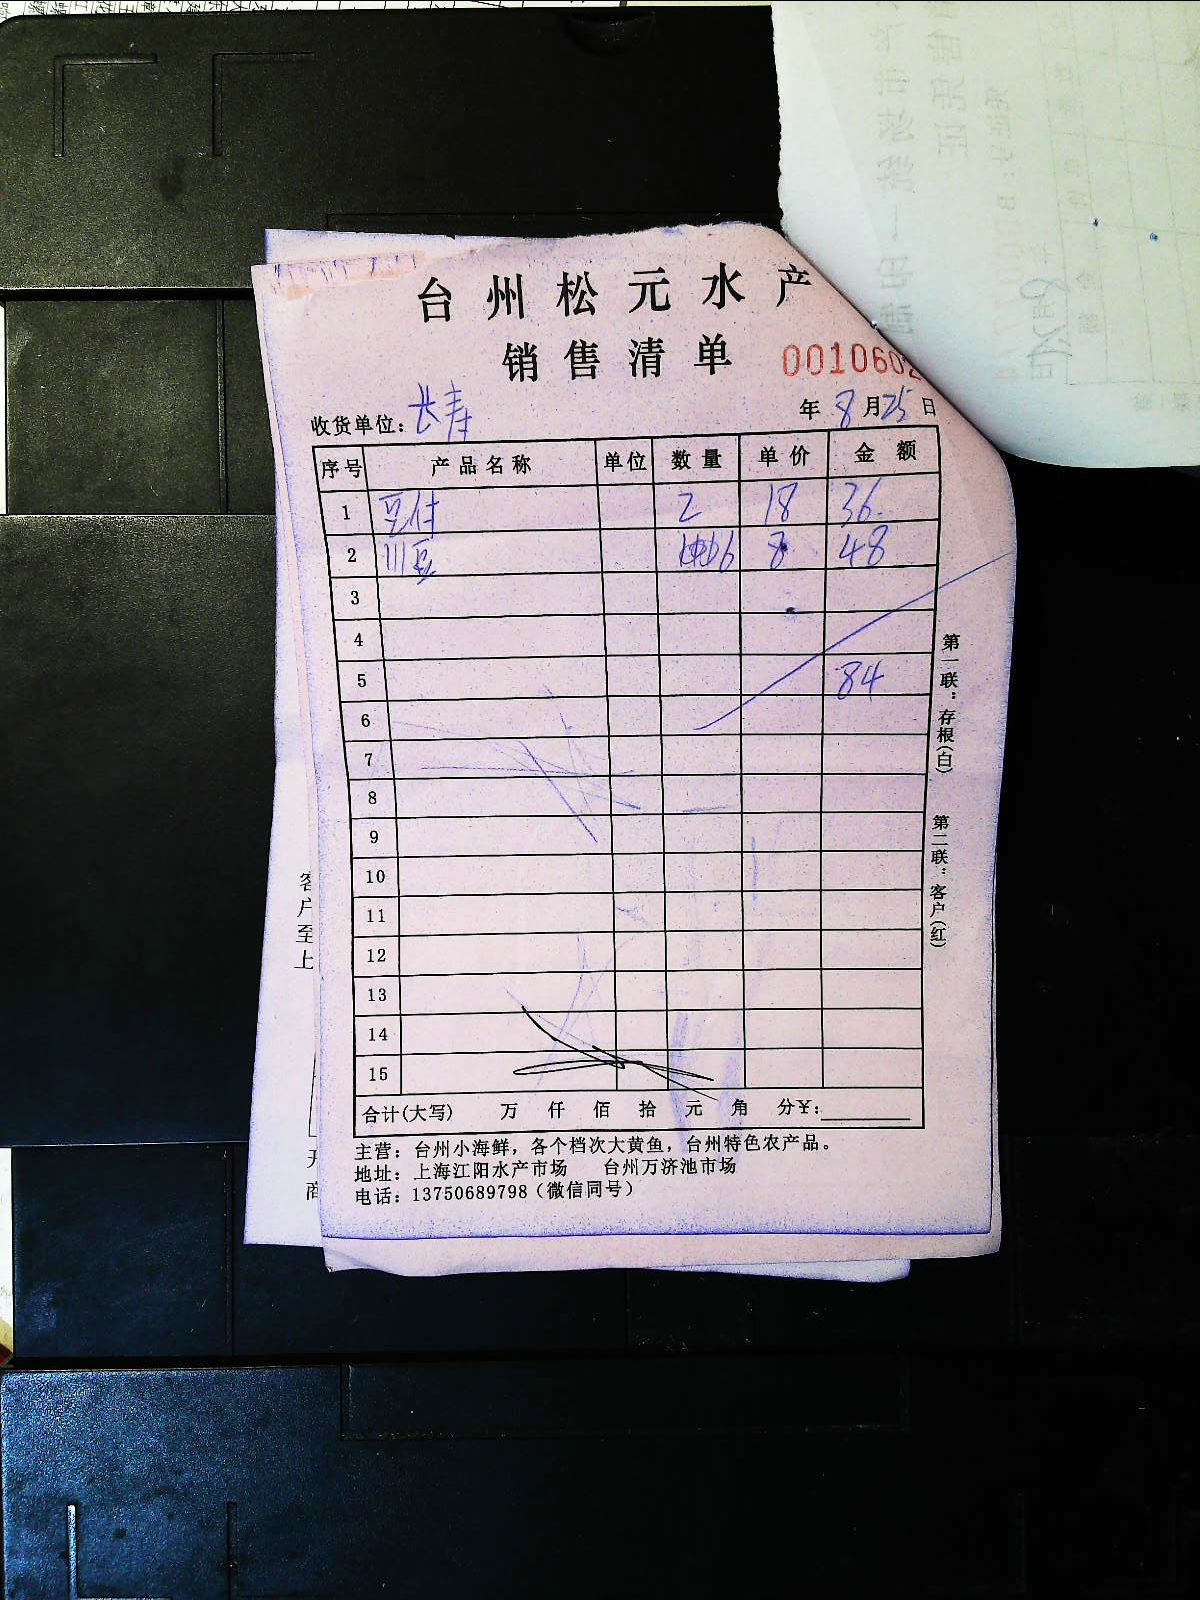 台州松元水产
销售清单 001060
收货单位：长寿 年 8 月 25 日
序号 产品名称 单位 数量 单价 金额
1 豆付 2 18 36
2 川豆 6 8 48
3
4
5 84
6
7
8
9
10
11
12
13
14
15
合计(大写) 万 仟 佰 拾 元 角 分￥：
主营：台州小海鲜，各个档次大黄鱼，台州特色农产品。
地址：上海江阳水产市场 台州万济池市场
电话：13750689798（微信同号）
第一联：存根(白)
第二联：客户(红)
客户至上